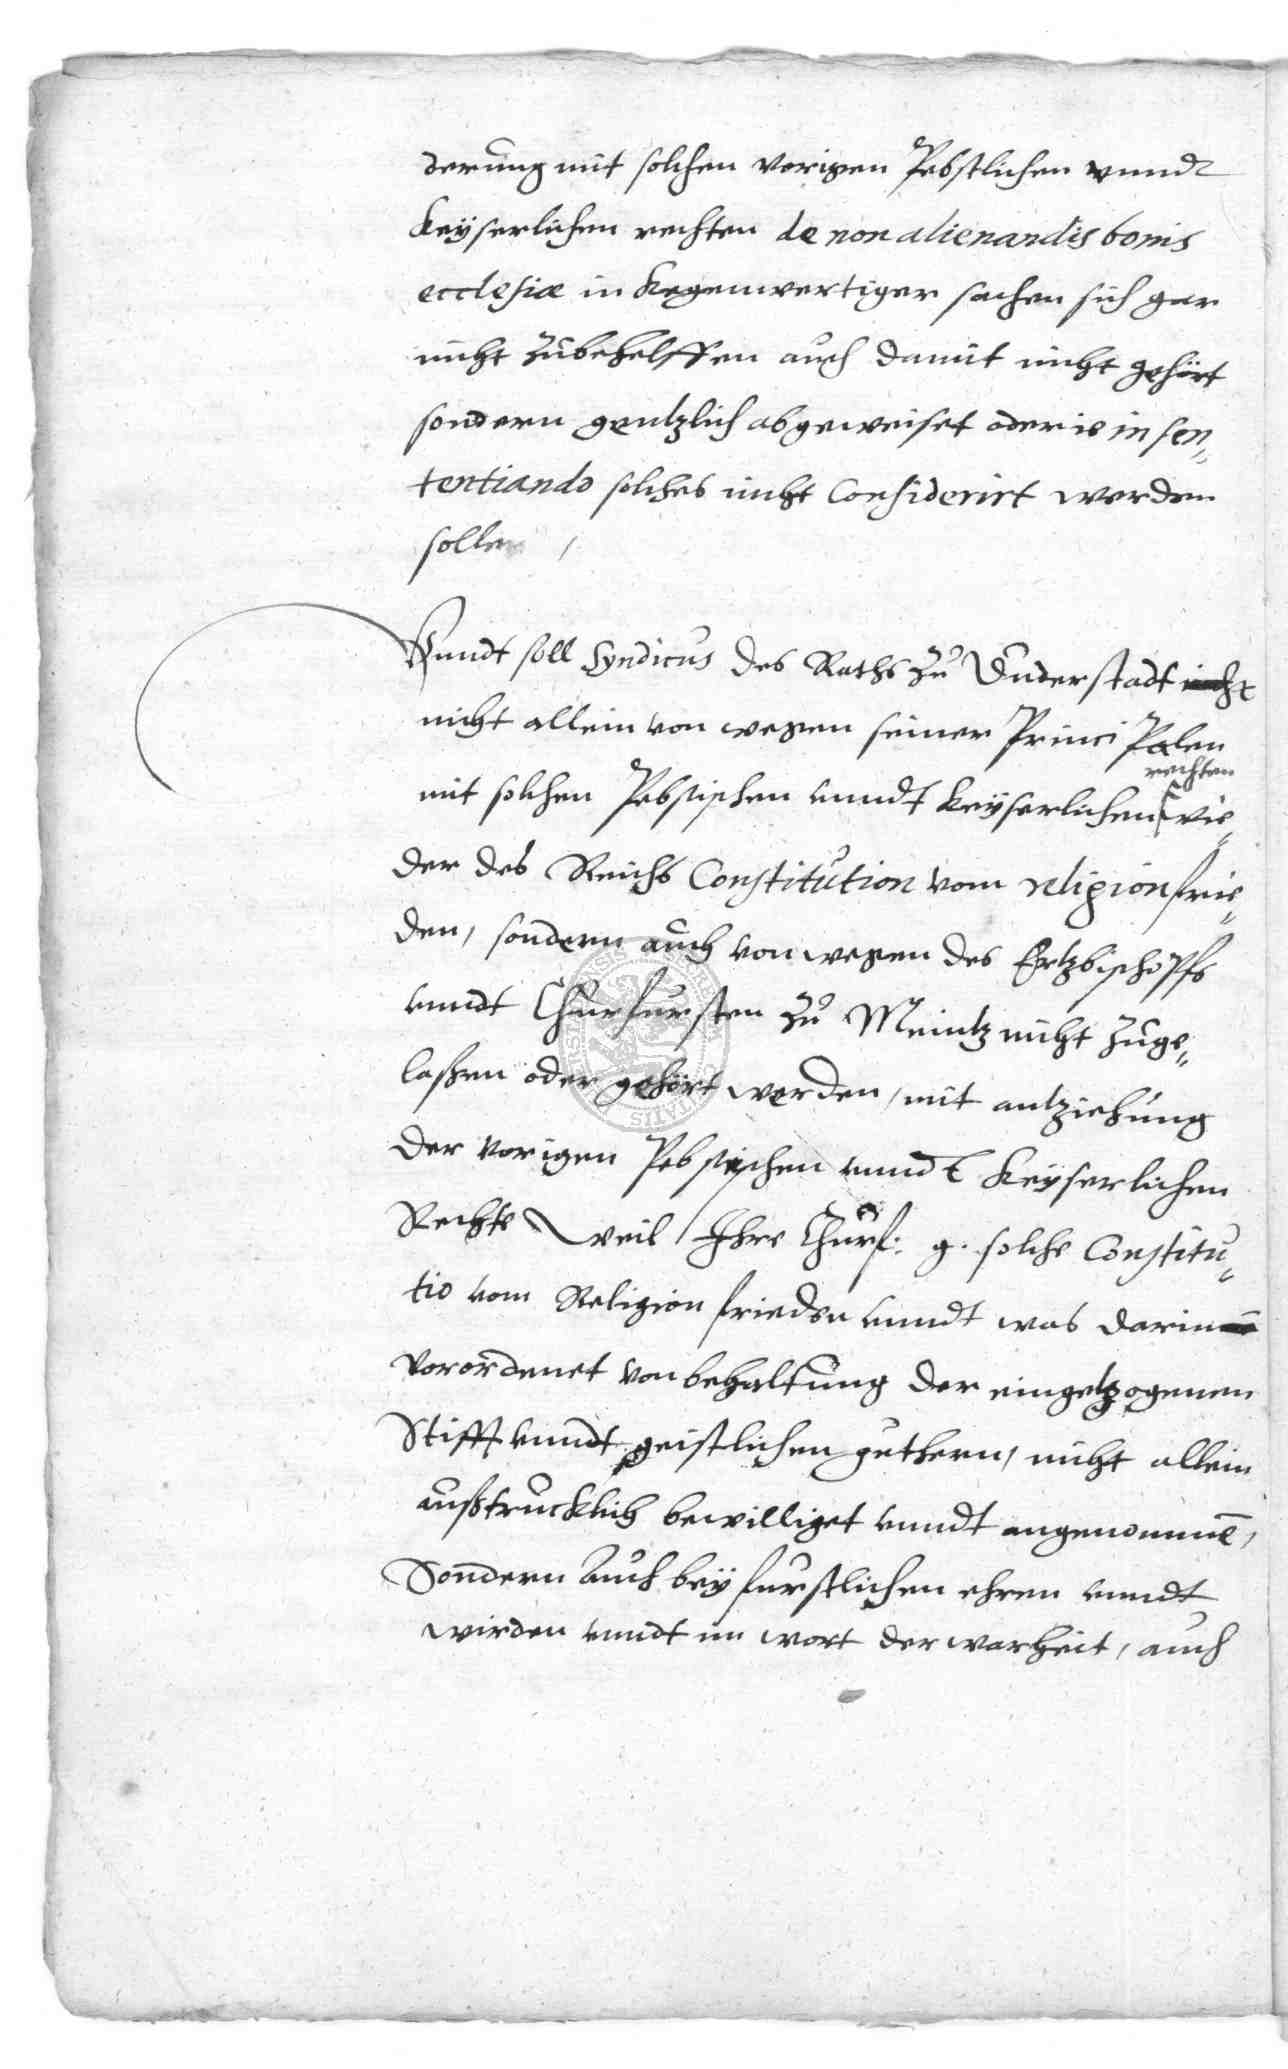 derung mit solchen vorigen Pebstlichen vnndt
Keÿserlichen rechten de non alienandis bonis
ecclesiæ in Kegenwertiger sachen sich gar
nicht zubehelffen auch damit nicht gehört
sondern gentzlich abgeweiset oder ie in sen„
tentiando solches nicht Considerirt werden
sollen,
Vnndt soll Syndicus des Raths zu Duderstadt nicht
nicht allein von wegen seiner PrinciPalen
rechten
mit solchen Pebstischen vnndt Keÿserlichen wie„
der des Reichs Constitution vom religion frie„
den, sondern auch von wegen des Ertzbischopfs
vnndt Churfursten zu Meintz nicht zuge„
laßen oder gehört werden, mit antziehung
der vorigen Pebstischen vnndt Keÿserlichen
Rechte weil Ihre Churf: g. solche Constitu„
tio vom Religion frieden vnndt was darin
vorordenet von behaltung der eingetzogenen
Stifft vnndt geistlichen guthern, nicht allein
außtrucklich bewilliget vnndt angenommē,
Sondern auch beÿ furstlichen ehren vnndt
wirden vnndt im wort der warheit, auch